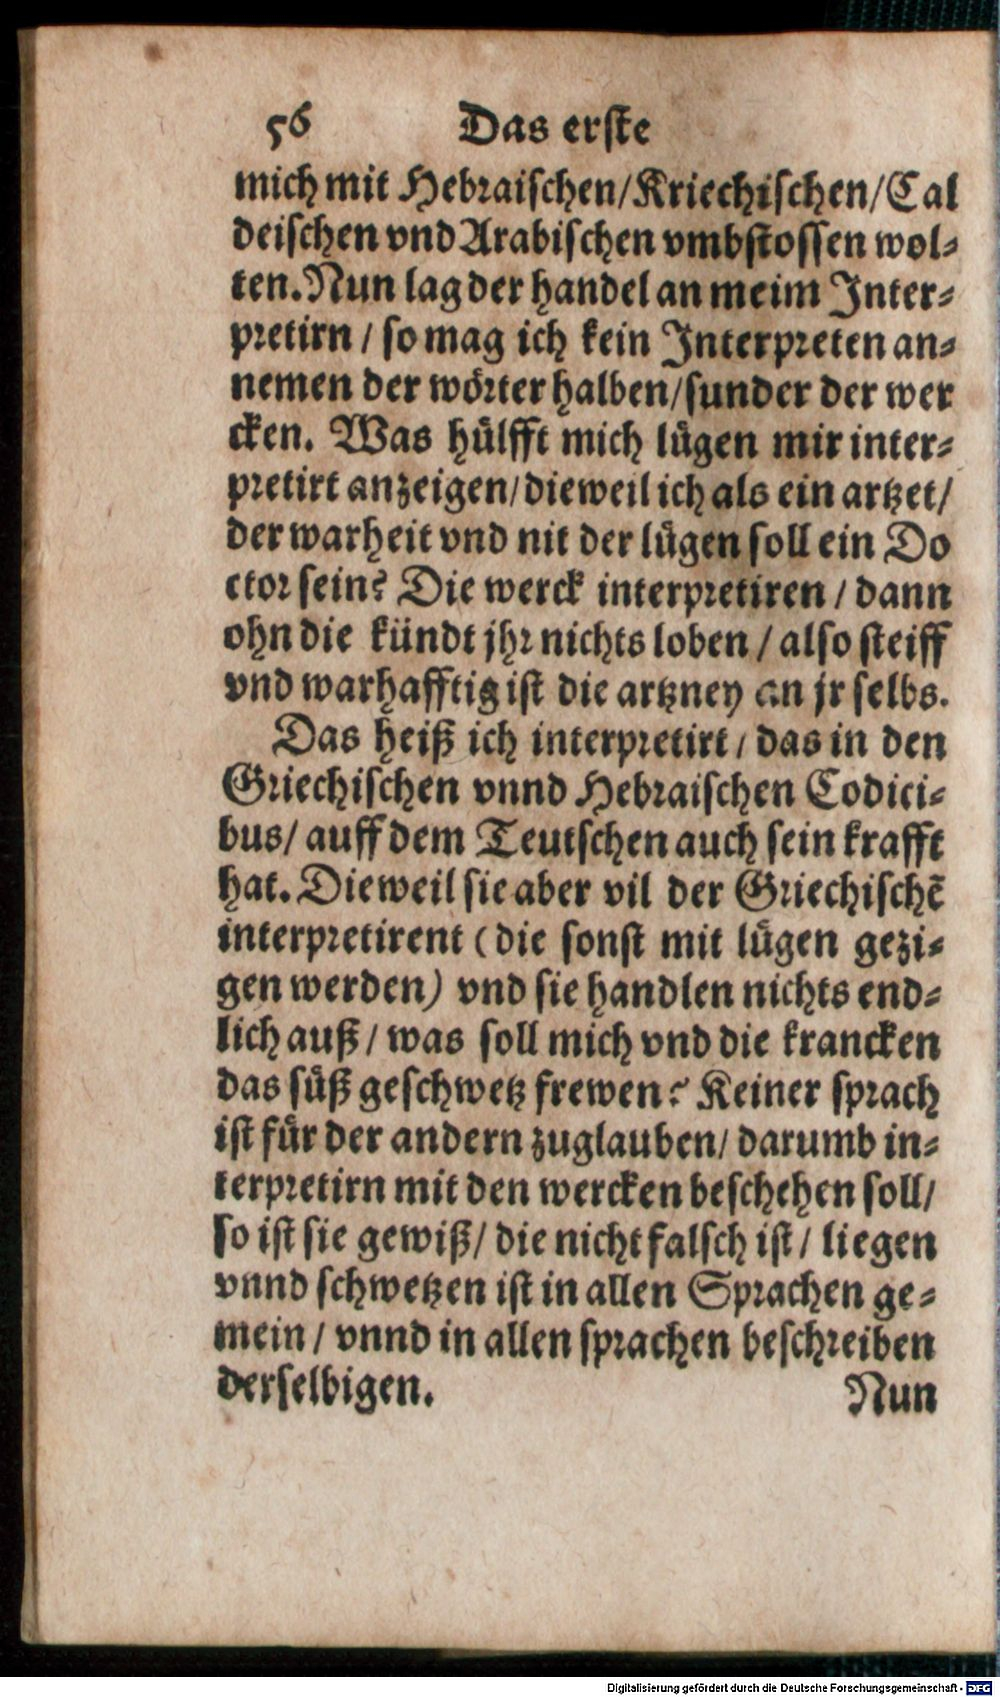 56 Das erste
mich mit Hebraischen/Kriechischen/Cal
deischen vnd Arabischen vmbstossen wol-
ten. Nun lag der handel an meim Inter-
pretirn / so mag ich kein Interpreten an-
nemen der wörter halben/sunder der wer
cken. Was hülfft mich lügen mir inter-
pretirt anzeigen/dieweil ich als ein artzet/
der warheit vnd nit der lügen soll ein Do
ctor sein? Die werck interpretiren / dann
ohn die kündt jhr nichts loben / also steiff
vnd warhafftig ist die artzney an jr selbs.
Das heiß ich interpretirt / das in den
Griechischen vnnd Hebraischen Codici-
bus/ auff dem Teutschen auch sein krafft
hat. Dieweil sie aber vil der Griechischẽ
interpretirent (die sonst mit lügen gezi-
gen werden) vnd sie handlen nichts end-
lich auß / was soll mich vnd die krancken
das süß geschwetz frewen? Keiner sprach
ist für der andern zuglauben/ darumb in-
terpretirn mit den wercken beschehen soll/
so ist sie gewiß/ die nicht falsch ist / liegen
vnnd schwetzen ist in allen Sprachen ge-
mein / vnnd in allen sprachen beschreiben
derselbigen. Nun
Digitalisierung gefördert durch die Deutsche Forschungsgemeinschaft - DFG